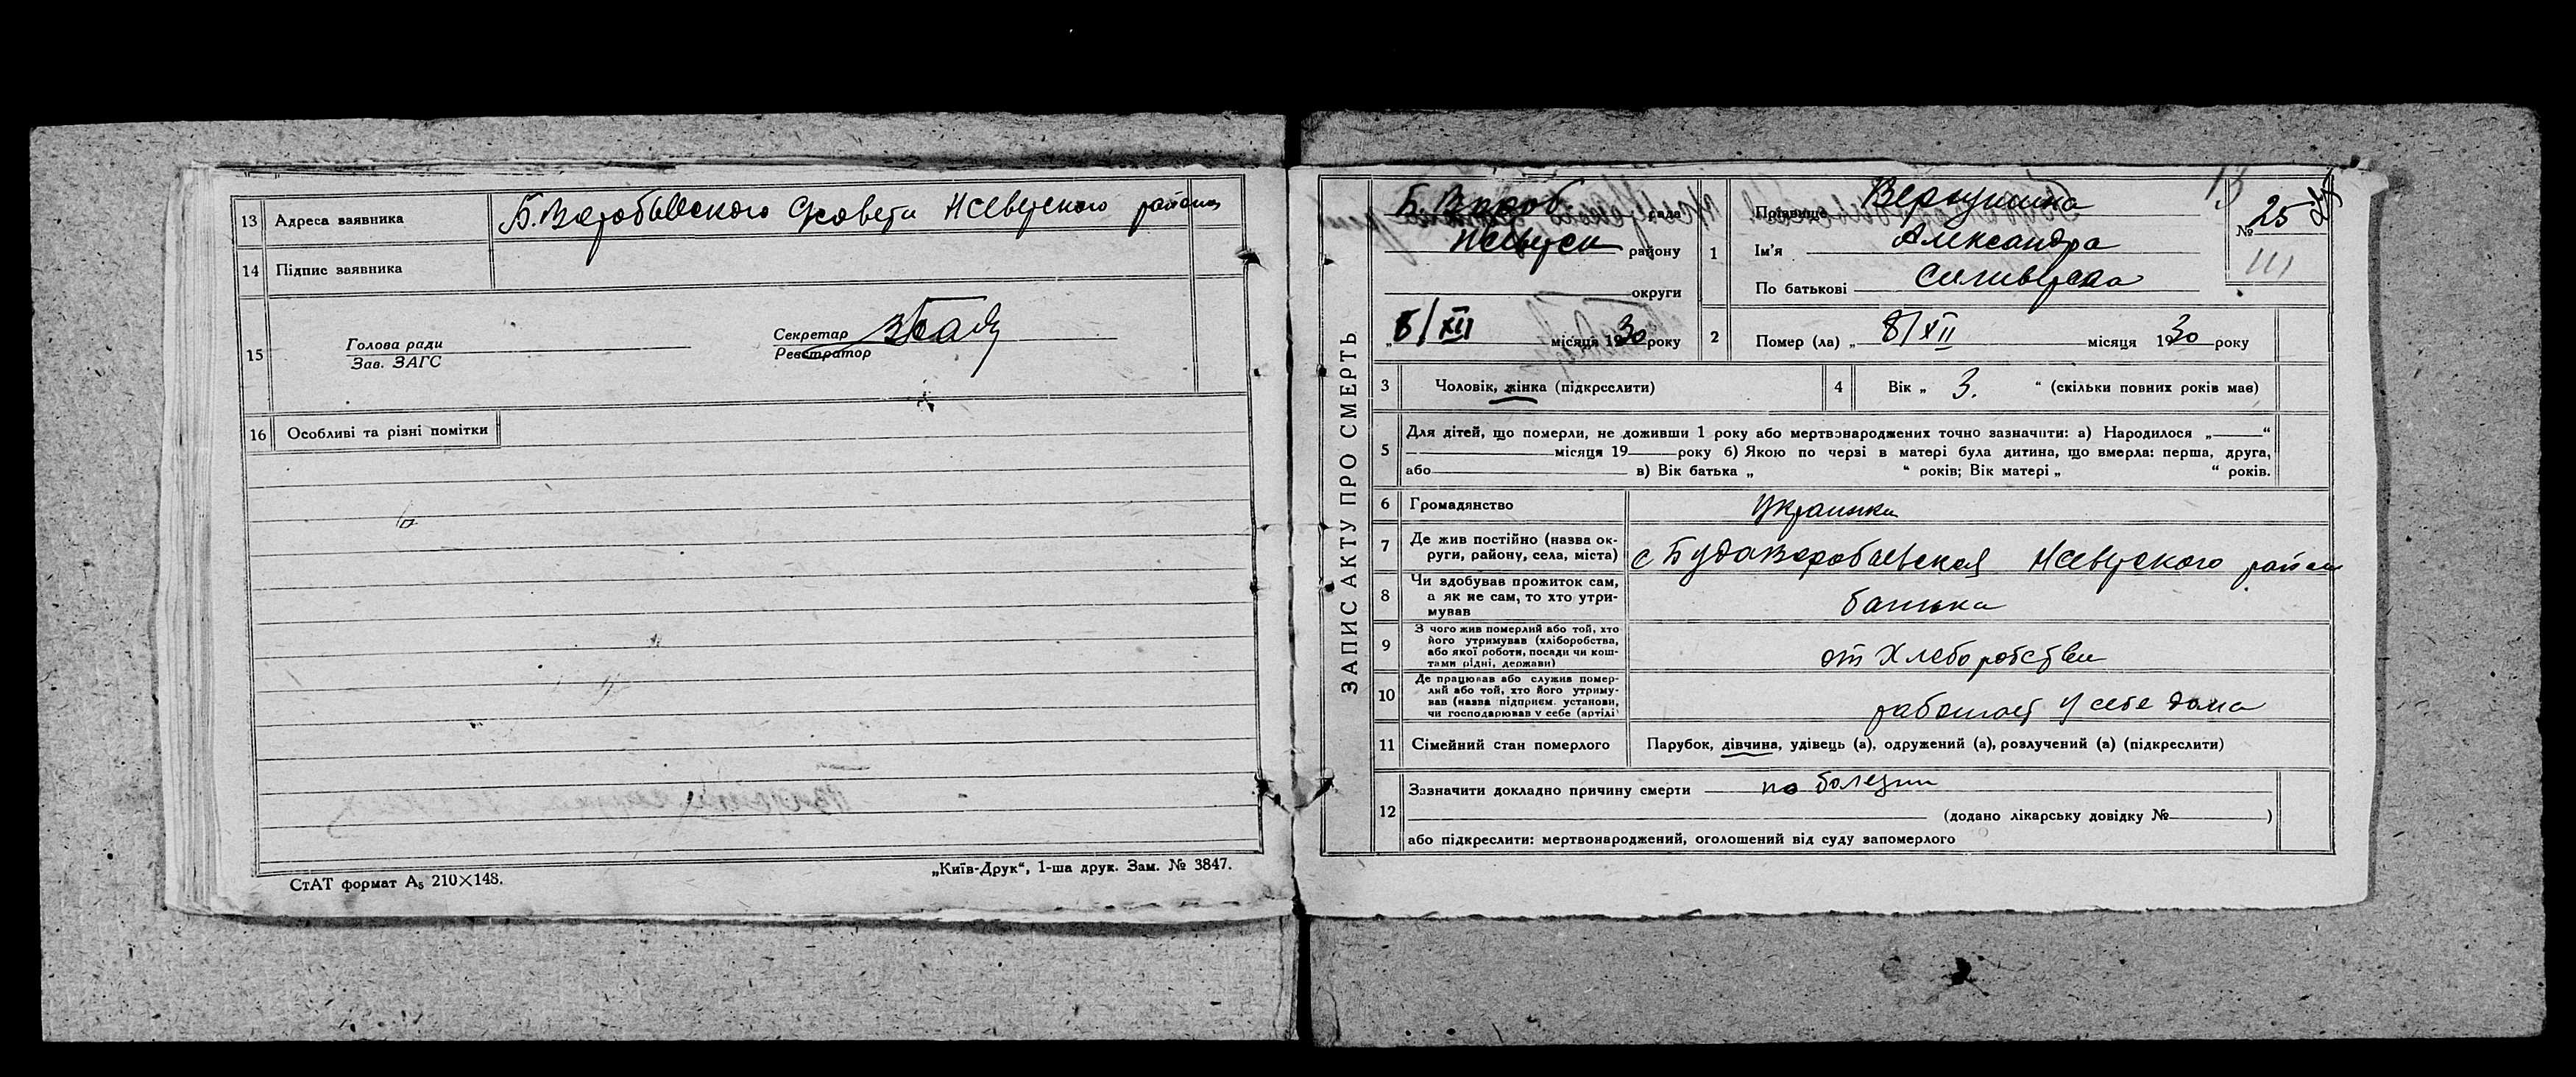 13 Адреса заявника Б. Воробьевского С/совета Нсеверского района
14 Підпис заявника
15 Голова ради
Зав. ЗАГС
Секретар
Реєстратор
16 Особливі та різні помітки
СтАТ формат А₅ 210×148.
„Київ-Друк“, 1-ша друк. Зам. № 3847.
ЗАПИС АКТУ ПРО СМЕРТЬ
Б. Вороб. рада
Нсеверск району
округи
„8/XII місяця 1930 року
1 Прізвище
Ім'я Александра
По батькові
№ 25
III
2 Помер (ла) „ 8/XII місяця 1930 року
3 Чоловік, жінка (підкреслити)
4 Вік „ 3. “ (скільки повних років має)
5 Для дітей, що померли, не доживши 1 року або мертвонароджених точно зазначити: а) Народилося „ “
місяця 19 року б) Якою по черзі в матері була дитина, що вмерла: перша, друга,
або в) Вік батька „ “ років; Вік матері „ “ років.
6 Громадянство Украинка
7 Де жив постійно (назва округи, району, села, міста) с Будаворобьевская Нсеверского район
8 Чи здобував прожиток сам,
а як не сам, то хто утри-
мував батька
9 З чого жив померлий або той, хто
його утримував (хліборобства,
або якої роботи, посади чи кош-
тами рідні, держави) от Хлеборобства
10 Де працював або служив помер-
лий або той, хто його утриму-
вав (назва підприєм. установи,
чи господарював у себе (артілі) работает у себе дома
11 Сімейний стан померлого Парубок, дівчина, удівець (а), одружений (а), розлучений (а) (підкреслити)
12 Зазначити докладно причину смерти по болезни
(додано лікарську довідку № )
або підкреслити: мертвонароджений, оголошений від суду запомерлого